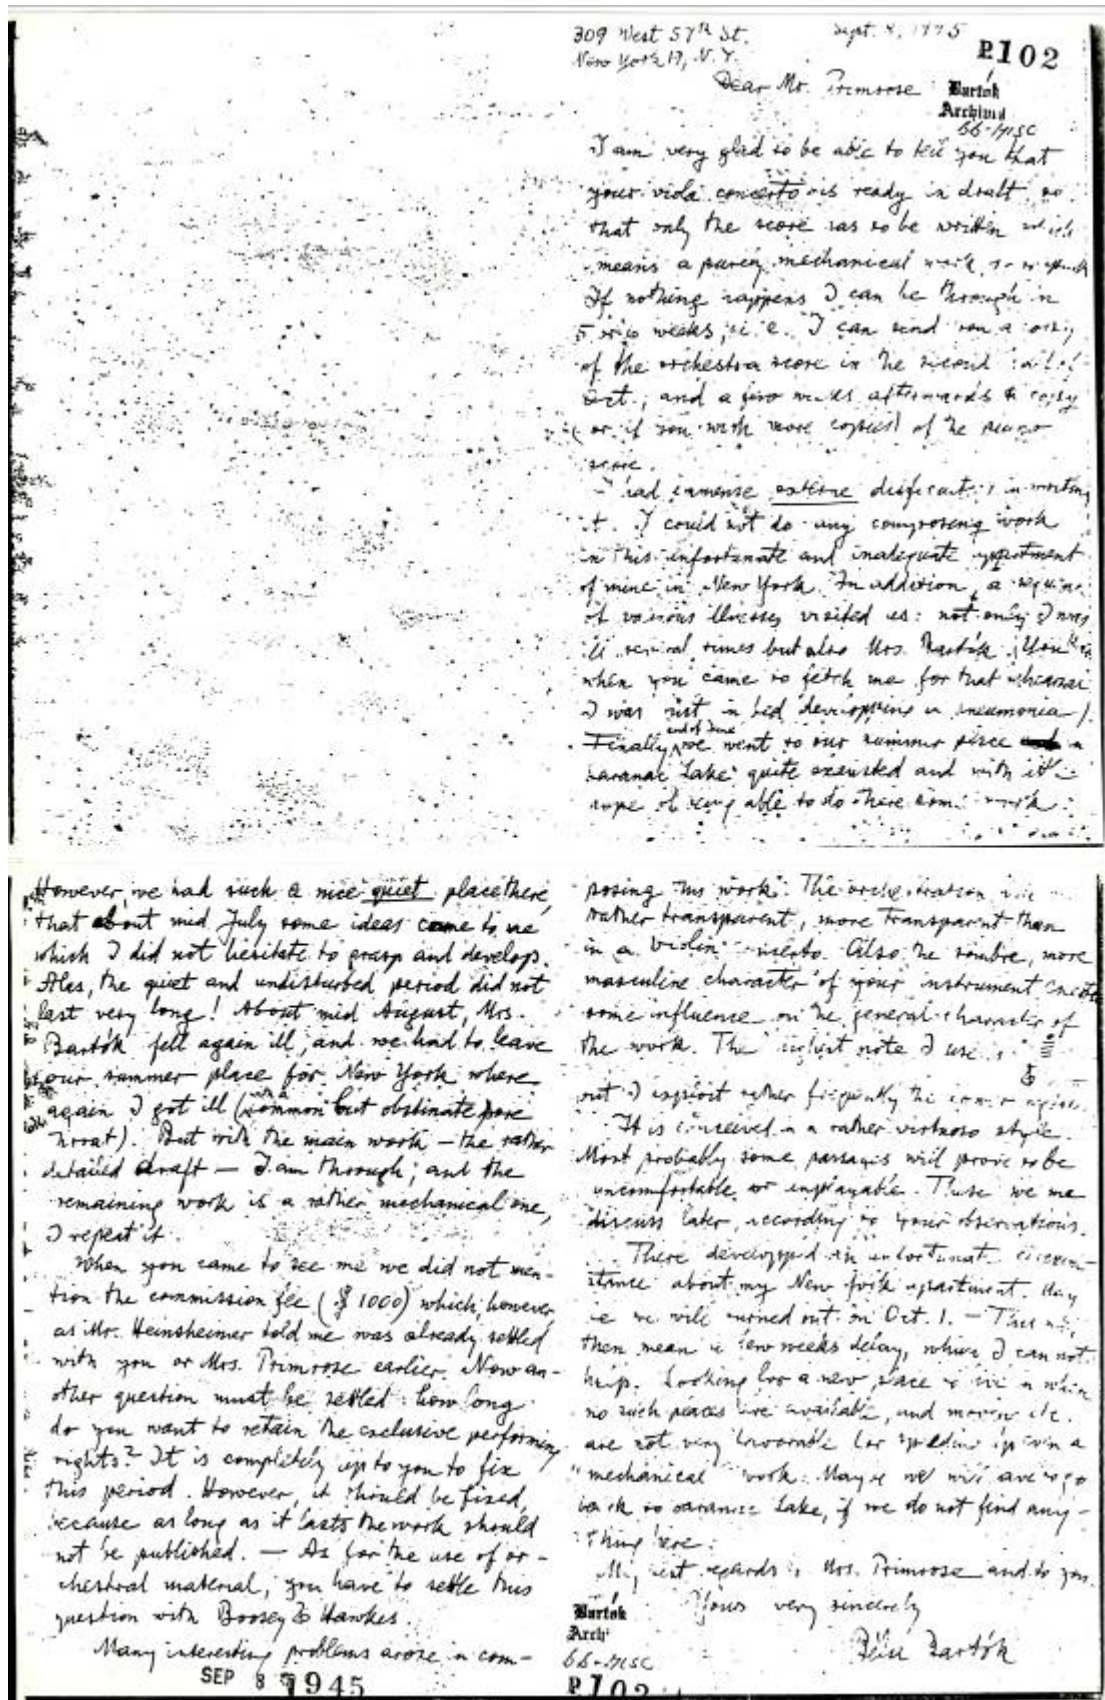 309 West 57th St.
Sept. 8, 1945
New York 19, N.Y.
P102
Dear Mr. Primrose
Bartók
Archival
BB-MISC
I am very glad to be able to tell you that
your viola concerto is ready in draft, so
that only the score has to be written which
means a purely mechanical work, so to speak
If nothing happens I can be through in
5 or 6 weeks, i.e. I can send you a copy
of the orchestra score in the second half of
Oct., and a few weeks afterwards a copy
(or if you wish more copies) of the piano
score.
I had immense extreme in writing
it. I could not do any composing work
in this unfortunate and inadequate apartment
of mine in New York. In addition, a
of various illnesses visited us: not only I was
ill several times but also Mrs. Bartók. (You
when you came to fetch me for that rehearsal
I was just in bed developing a pneumonia).
Finally, end of June we went to our summer place
Saranac Lake quite exausted and with
hope of being able to do there some work.
However, we had such a nice quiet place there,
that about mid July some ideas came to me
which I did not hesitate to grasp and develop.
Alas, the quiet and undisturbed period did not
last very long! About mid August, Mrs.
Bartók fell again ill, and we had to leave
our summer place for New York where
again I got ill (with a common but obstinate sore
throat). But with the main work — the rather
detailed draft — I am through; and the
remaining work is a rather mechanical one,
I repeat it.
When you came to see me we did not men-
tion the commission fee ($ 1000) which, however,
as Mr. Heinsheimer told me was already settled
with you or Mrs. Primrose earlier. Now an-
other question must be settled: how long
do you want to retain the exclusive performing
rights? It is completely up to you to fix
this period. However, it should be fixed,
because as long as it lasts the work should
not be published. — As for the use of or-
chestral material, you have to settle this
question with Boosey & Hawkes.
Many interesting problems arose in com-
SEP 8 1945
posing this work. The orchestration
rather transparent, more transparent than
in a violin concerto. Also the sombre, more
masculine character of your instrument
some influence on the general character of
the work. The highest note I use is
but I exploit rather frequently the lower
It is conceived in a rather virtuoso style.
Most probably some passages will prove to be
uncomfortable or unplayable. These we
discuss later, according to your observations.
There developped an unfortunate circum-
stance about my New York apartment. May
be we will turned out on Oct. 1. — This
then mean a few weeks delay, which I can not
help. Looking for a new place to live in when
no such places are available, and moving etc.
are not very favorable for speeding up even a
"mechanical" work. Maybe we will have to go
back to Saranac Lake, if we do not find any-
thing here.
My best regards to Mrs. Primrose and to you
Yours very sincerely
Béla Bartók
Bartók
Arch
BB-MISC
P102